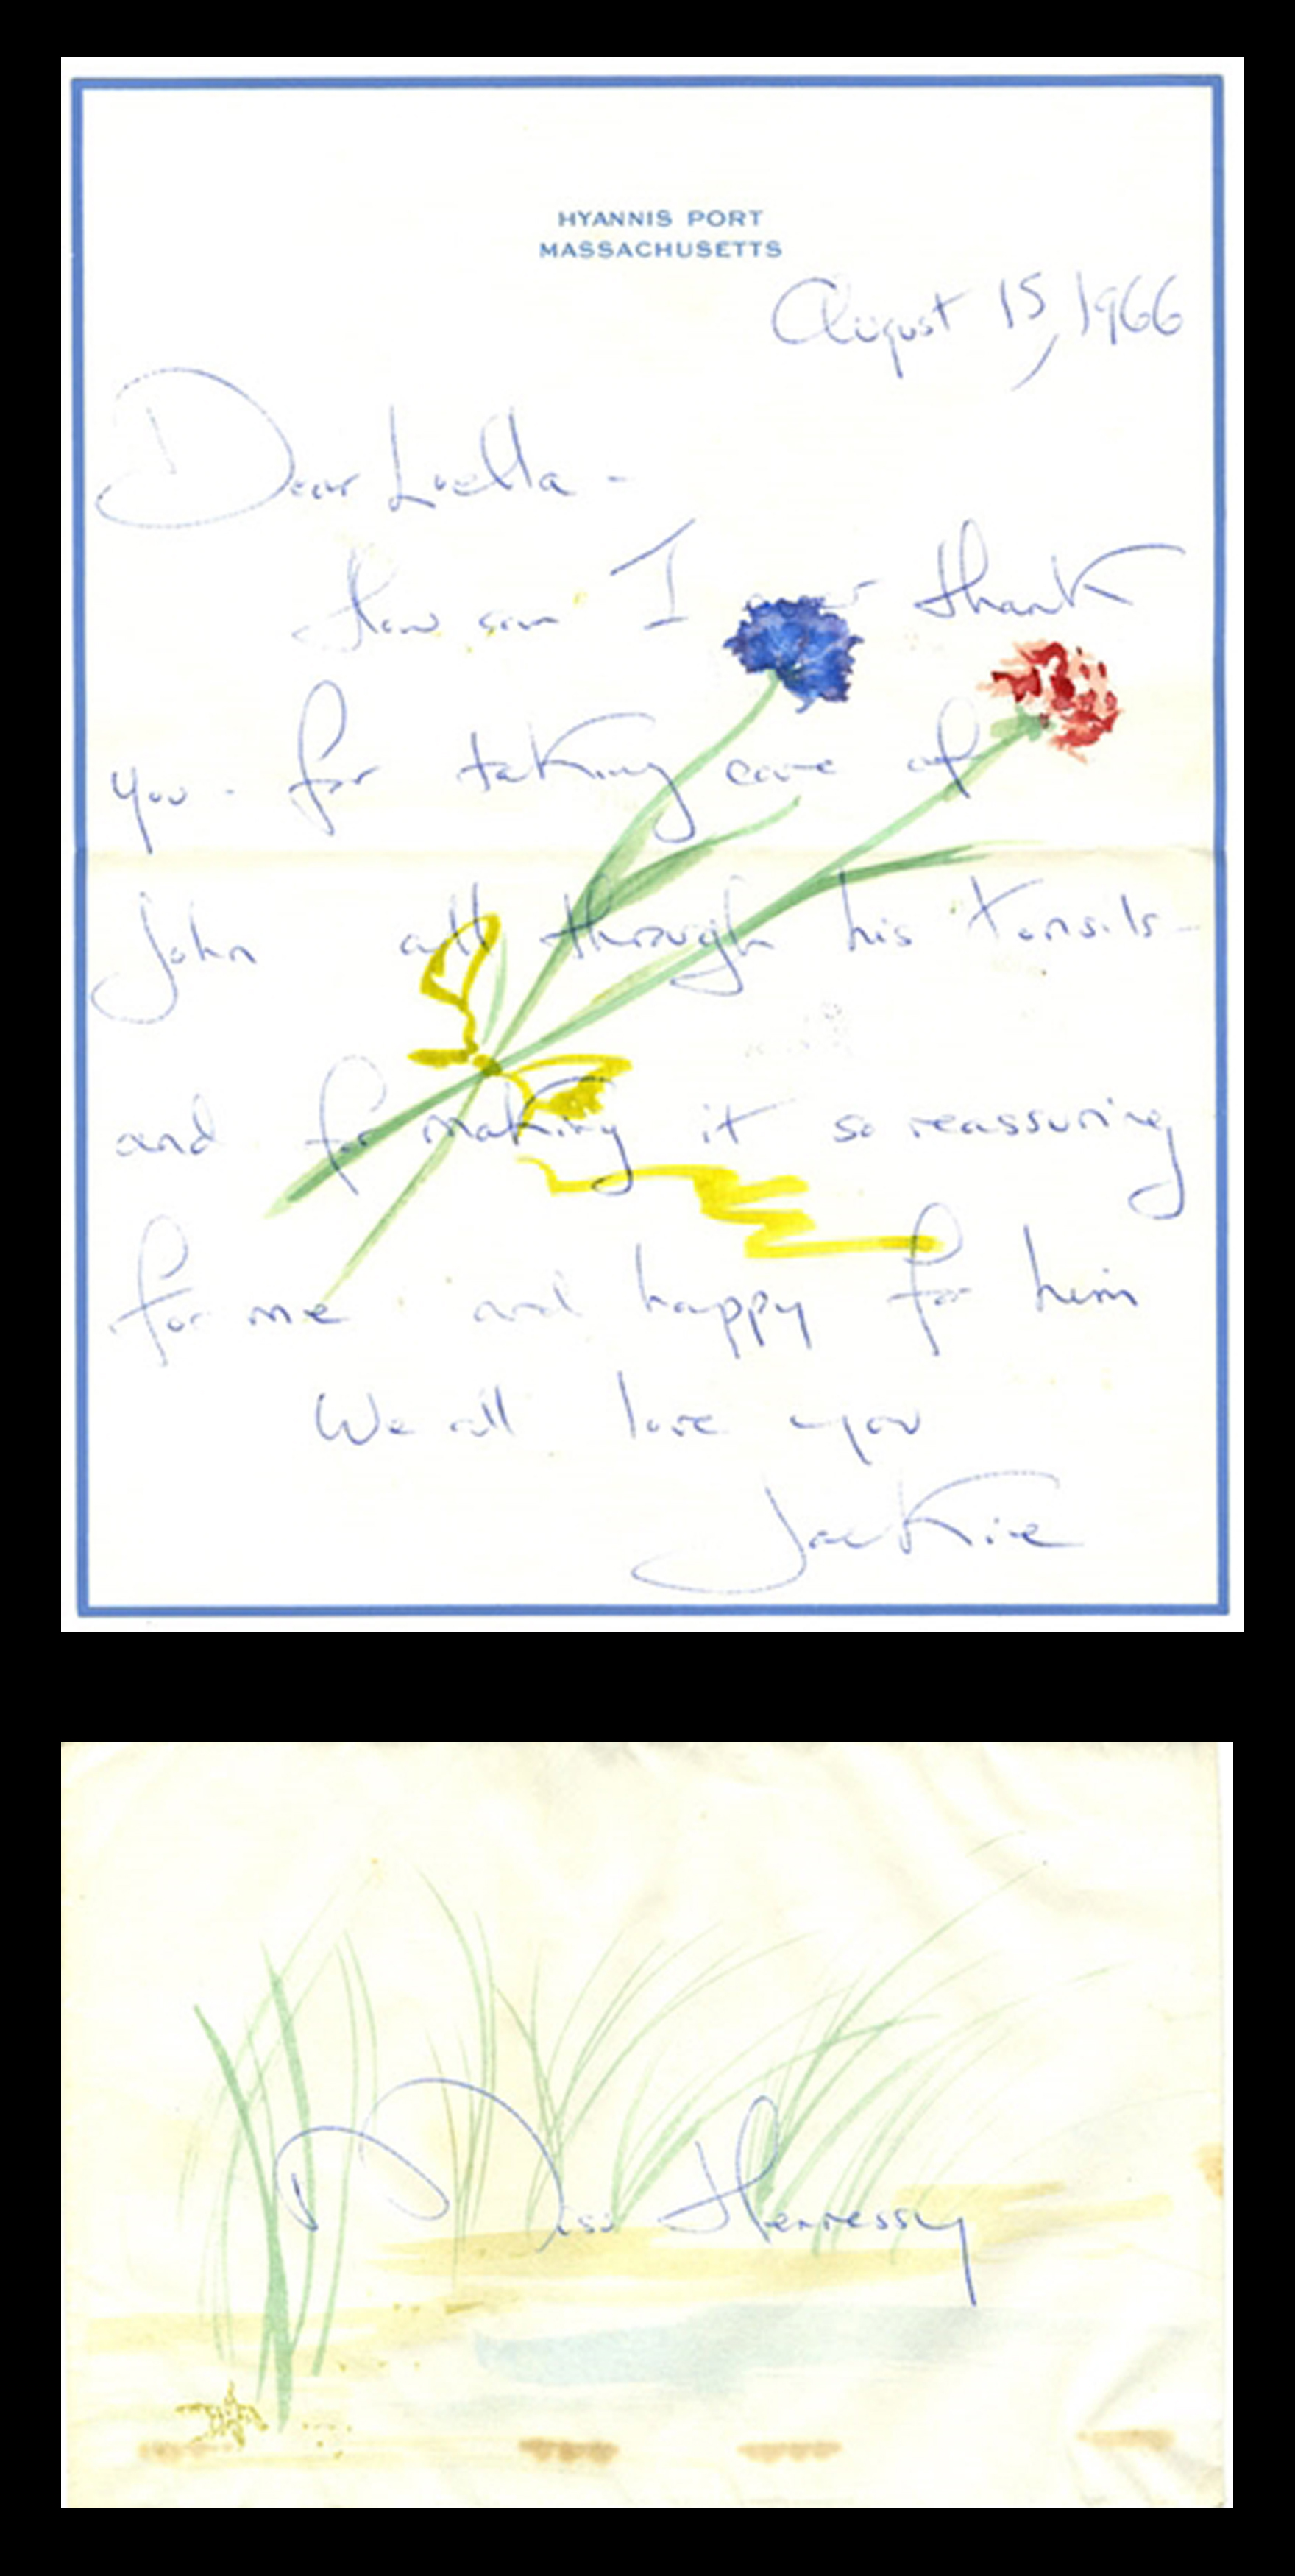 HYANNIS PORT
MASSACHUSETTS
August 15, 1966
Dear Luella -
How can I ever thank
you - for taking care of
John all through his tonsils -
and for making it so reassuring
for me and happy for him
We all love you
Jackie
Miss Hennessy